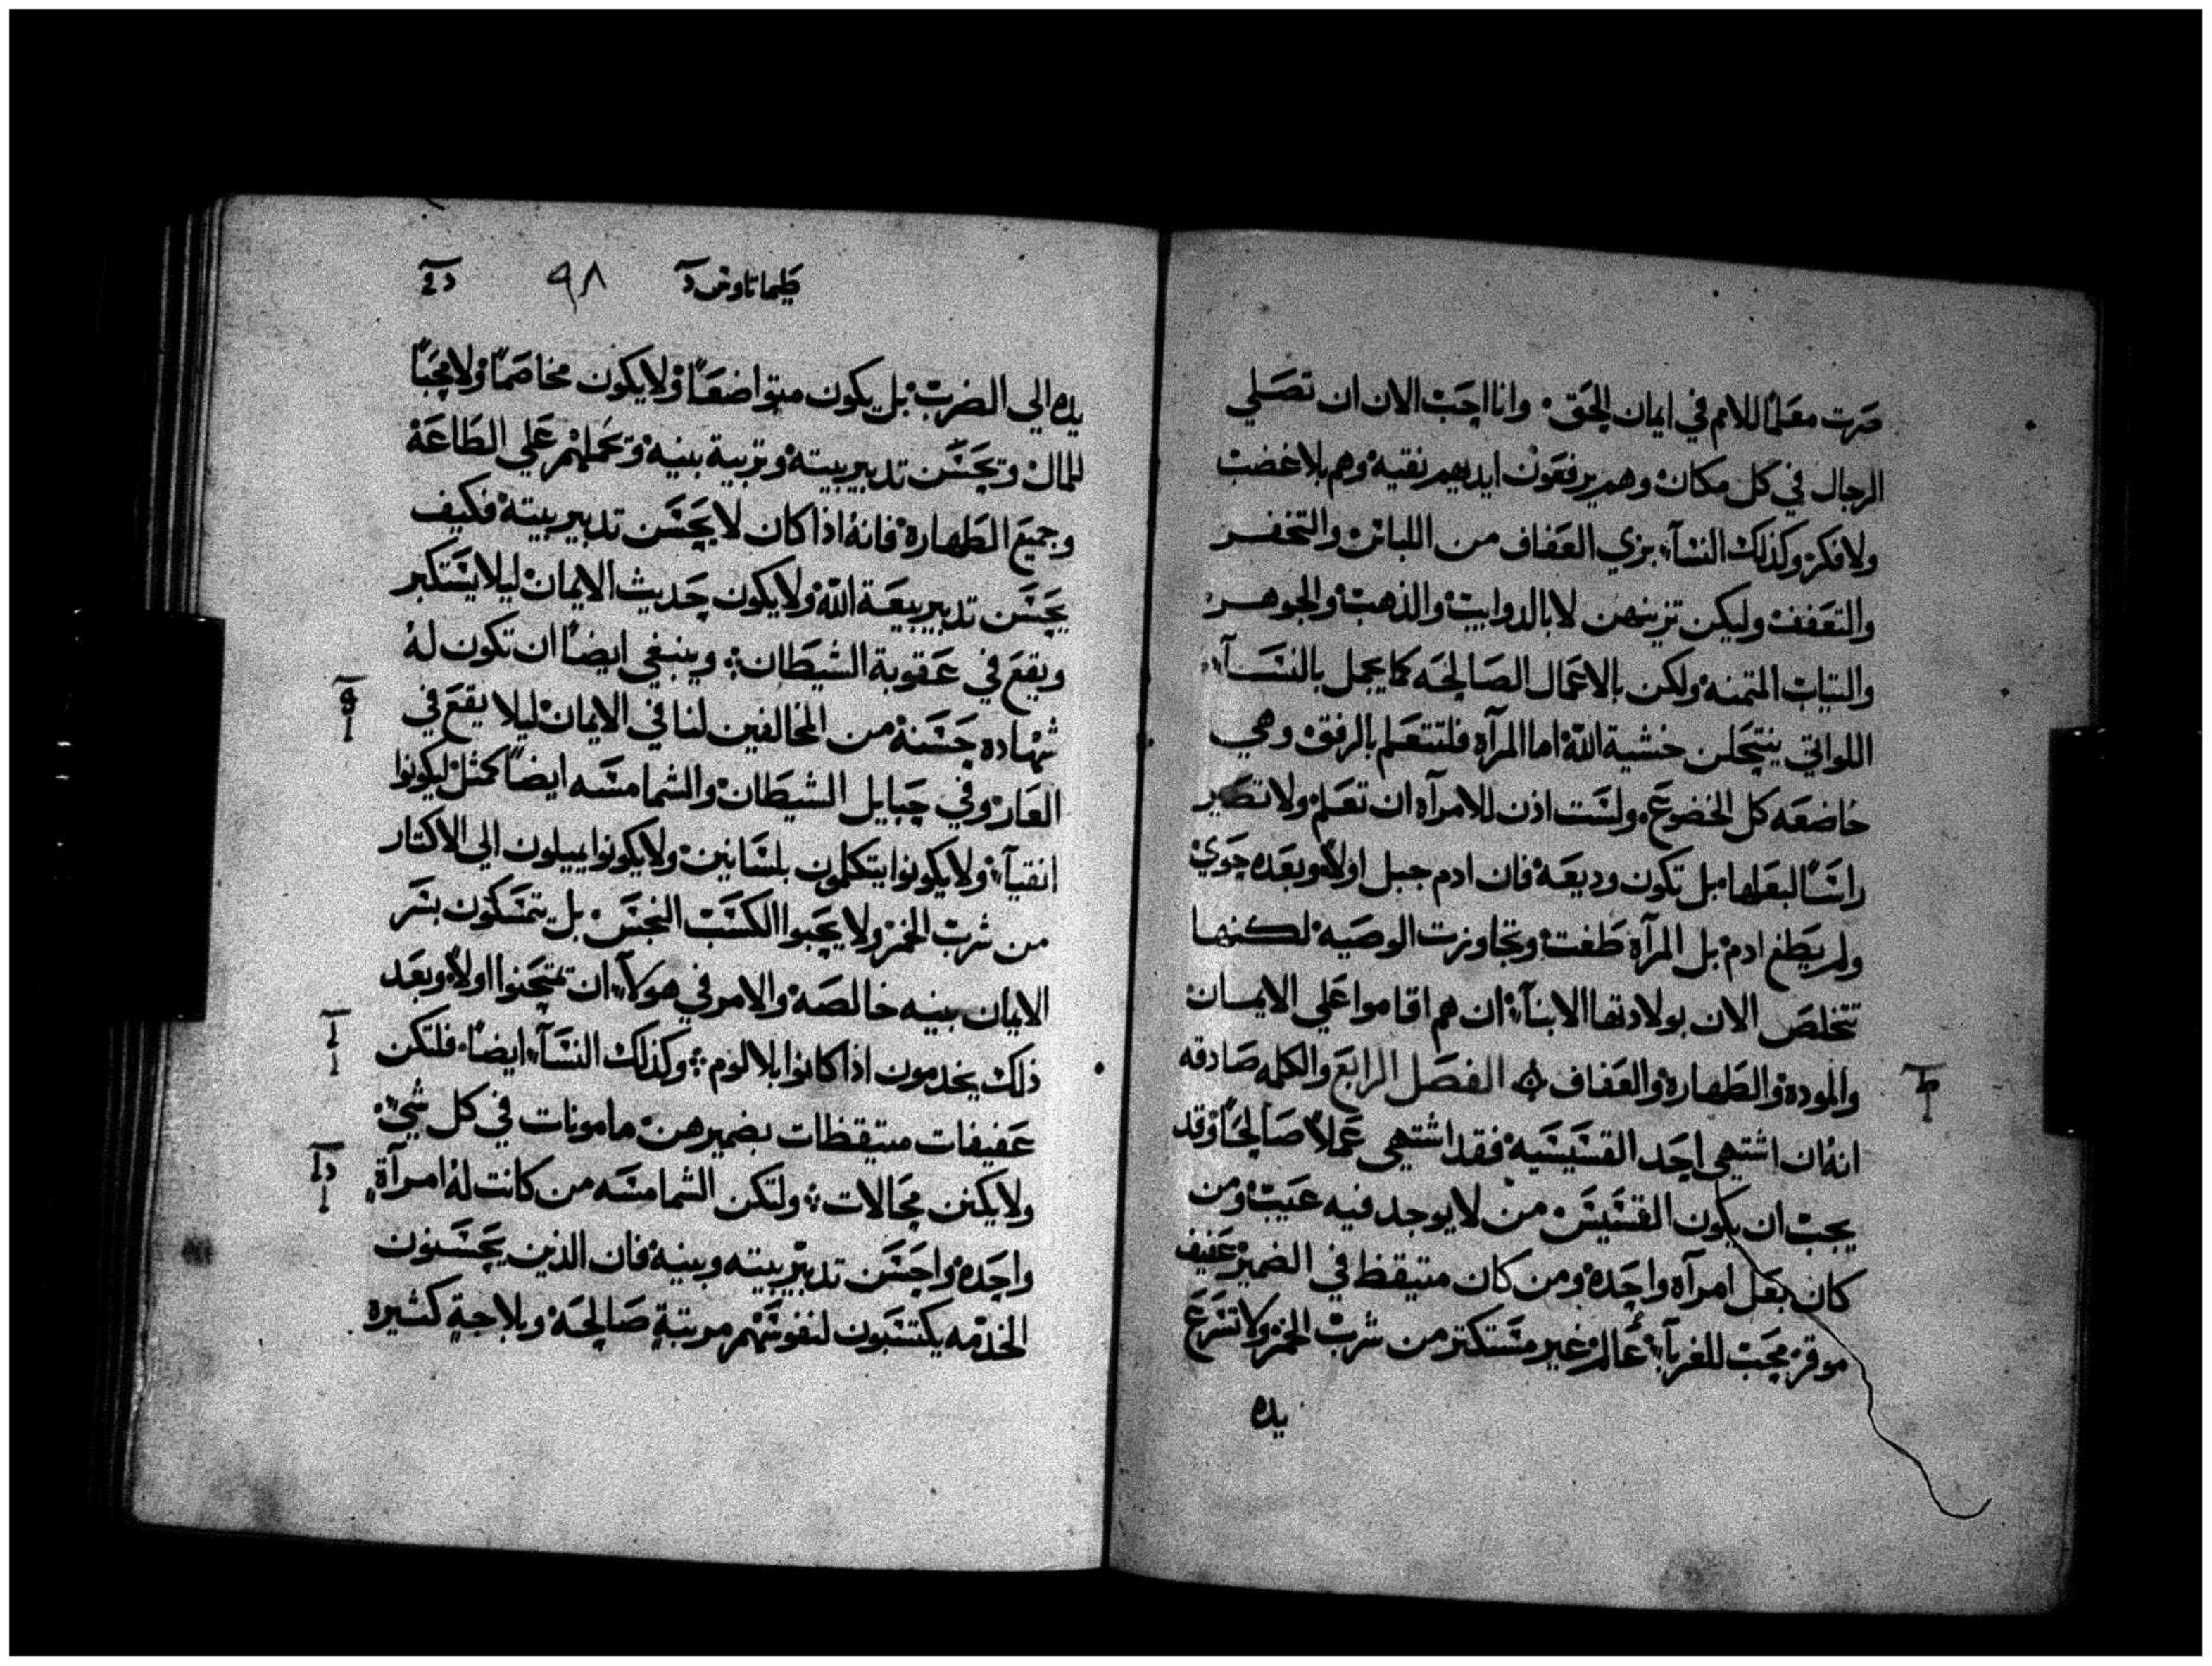 صرت معلمًا للامم في ايمان الحق. وانا احب الان ان تصلي
الرجال في كل مكان وهم يرفعون ايديهم نقيه وهم بلا غضب
ولا فكر وكذلك النسآء بزي العفاف من اللباس والتخفر
والتعفف وليكن تزينهن لا بالدوايب والذهب والجوهر
والتياب المتمنه ولكن بالاعمال الصالحه كما يجمل بالنسآء
اللواتي ينتحلن خشية الله اما المرآه فلتتعلم بالرفق وهي
خاضعه كل الخضوع. ولست اذن للامرآه ان تعلم ولا تصير
راسًا لبعلها بل تكون وديعه فان ادم جبل اولاً وبعده حوي
ولم يطغ ادم بل المرآه طغت وتجاوزت الوصيه لكنها
تتخلص الان بولادتها الابنآء ان هم اقاموا علي الايمان
والموده والطهاره والعفاف الفصل الرابع والكلمه صادقه
انه ان اشتهي احد القسيسيه فقد اشتهي عملاً صالحًا وقد
يجب ان يكون القسيس من لا يوجد فيه عيب ومن
كان بعل امرآه واحده ومن كان متيقظ في الضمير عفيف
موقر محب للغربآء عالم غير مستكتر من شرب الخمر ولا تسرع
يده
طيماتاوس د
٩٨
يده الي الضرب بل يكون متواضعًا ولا يكون مخاصمًا ولا محبًا
للمال ويحسن تدبير بيته وتربية بنيه وتحملهم علي الطاعه
وجميع الطهاره فانه اذا كان لا يحسن تدبير بيته فكيف
يحسن تدبير بيعة الله ولا يكون حديث الايمان ليلا يستكبر
ويقع في عقوبة الشيطان وينبغي ايضًا ان تكون له
شهاده حسنه من المخالفين لنا في الايمان ليلا يقع في
العار وفي حبايل الشيطان والشمامسه ايضًا كمثل ليكونوا
انقيآء ولا يكونوا يتكلمون بلسانين ولا يكونوا يميلون الي الاكتار
من شرب الخمر ولا يحبوا الكسب النجس بل يتمسكون بسر
الايمان بنيه خالصه والامر في هولآء ان يمتحنوا اولاً وبعد
ذلك يخدمون اذا كانوا بلا لوم وكذلك النسآء ايضًا فلتكن
عفيفات متيقظات بضميرهن مامونات في كل شي
ولا يكن محالات ولتكن الشمامسه من كانت له امرآة
واحده واحسن تدبير بيته وبنيه فان الذين يحسنون
الخدمه يكتسبون لنفوسهم مرتبةٍ صالحه وبلاجةٍ كثيره